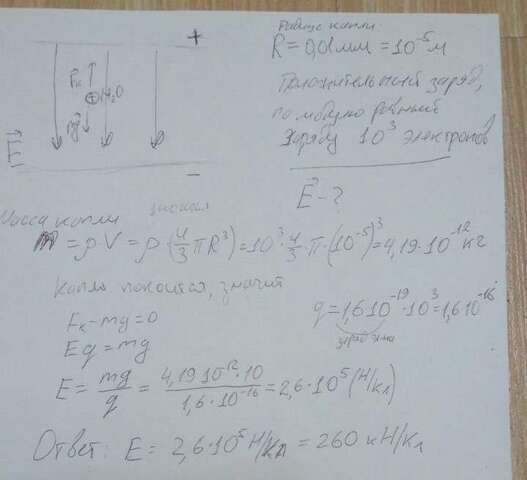 Радиус капли
R = 0,01мм = 10⁻⁵м
Положительный заряд,
по модулю равный
Заряду 10³ электронов
E⃗ - ?
+
Fк
⊕ H₂O
mg
E
−
Масса капли
m = ρV = ρ·(4/3 πR³) = 10³·4/3·π·(10⁻⁵)³ = 4,19·10⁻¹² кг
Капля покоится, значит
Fк - mg = 0
Eq = mg
q = 1,6·10⁻¹⁹·10³ = 1,6·10⁻¹⁶
E = mg/q = 4,19·10⁻¹²·10/1,6·10⁻¹⁶ = 2,6·10⁵ (Н/Кл)
Ответ: E = 2,6·10⁵ Н/Кл = 260 кН/Кл